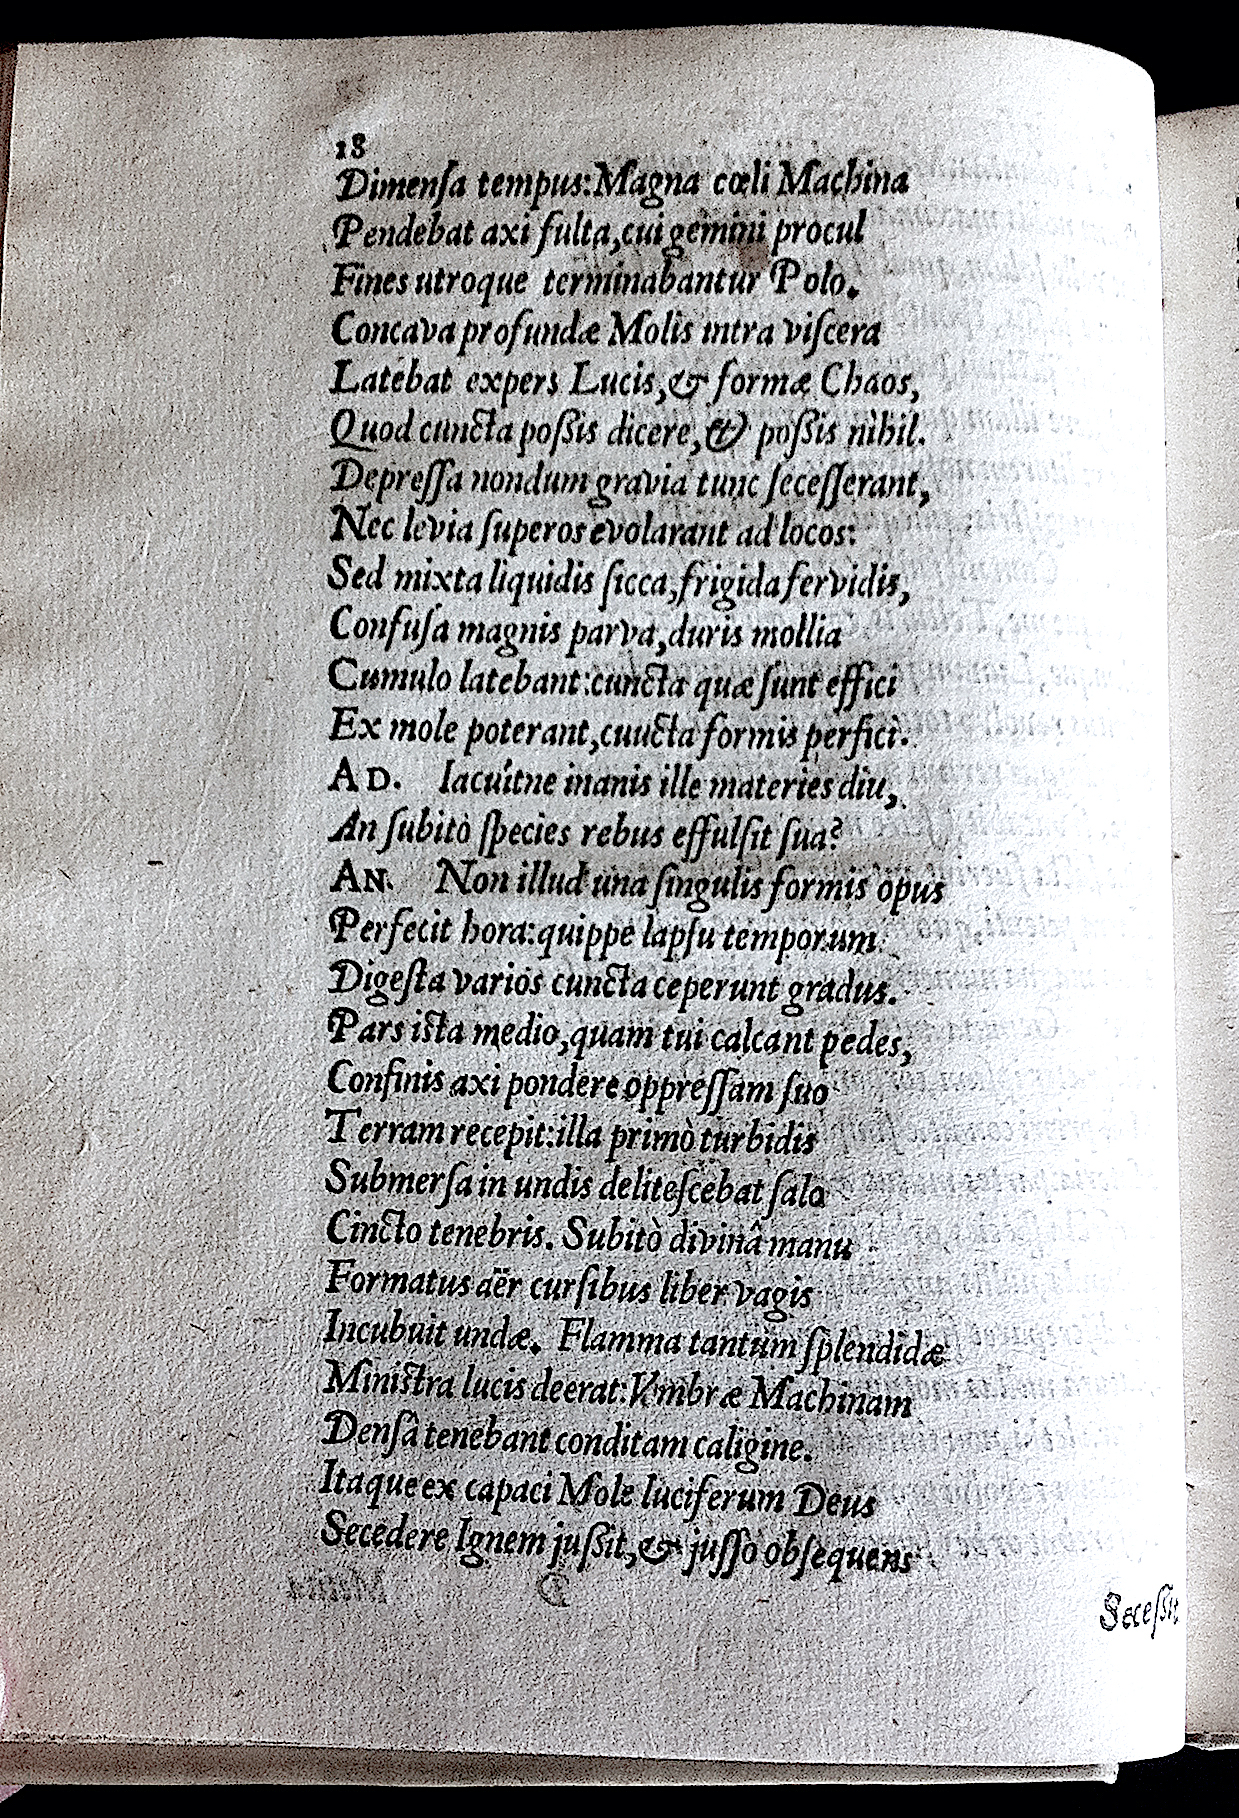 18
Dimenſa tempus:Magna cœli Machina
Pendebat axi fulta,cui gemini procul
Fines utroque terminabantur Polo.
Concava profundæ Molis intra viſcera
Latebat expers Lucis,& formæ Chaos,
Quod cuncta poſsis dicere,& poſsis nihil.
Depreſſa nondum gravia tunc ſeceſſerant,
Nec levia ſuperos evolarant ad locos:
Sed mixta liquidis ſicca,frigida fervidis,
Confuſa magnis parva,duris mollia
Cumulo latebant:cuncta quæ ſunt effici
Ex mole poterant,cuucta formis perfici.
AD. Iacuítne inanis ille materies diu,
An ſubitò ſpecies rebus effulſit ſua?
AN. Non illud una ſingulis formis opus
Perfecit hora:quippe lapſu temporum
Digeſta varios cuncta ceperunt gradus.
Pars iſta medio,quam tui calcant pedes,
Confinis axi pondere oppreſſam ſuo
Terram recepit:illa primò turbidis
Submerſa in undis deliteſcebat ſalo
Cincto tenebris. Subitò divinâ manu
Formatus aër curſibus liber vagis
Incubuit undæ. Flamma tantum ſplendidæ
Miniſtra lucis deerat:Vmbræ Machinam
Denſâ tenebant conditam caligine.
Itaque ex capaci Mole luciferum Deus
Secedere Ignem juſsit,& juſſo obſequens
Seceſsit